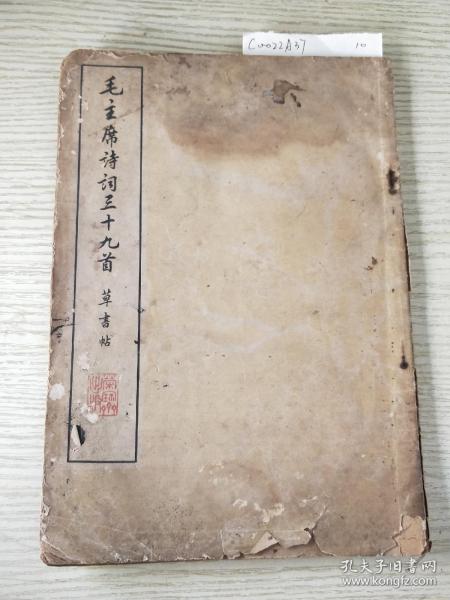 C0022A37 10
毛主席诗词三十九首 草书帖
孔夫子旧书网
www.kongfz.com